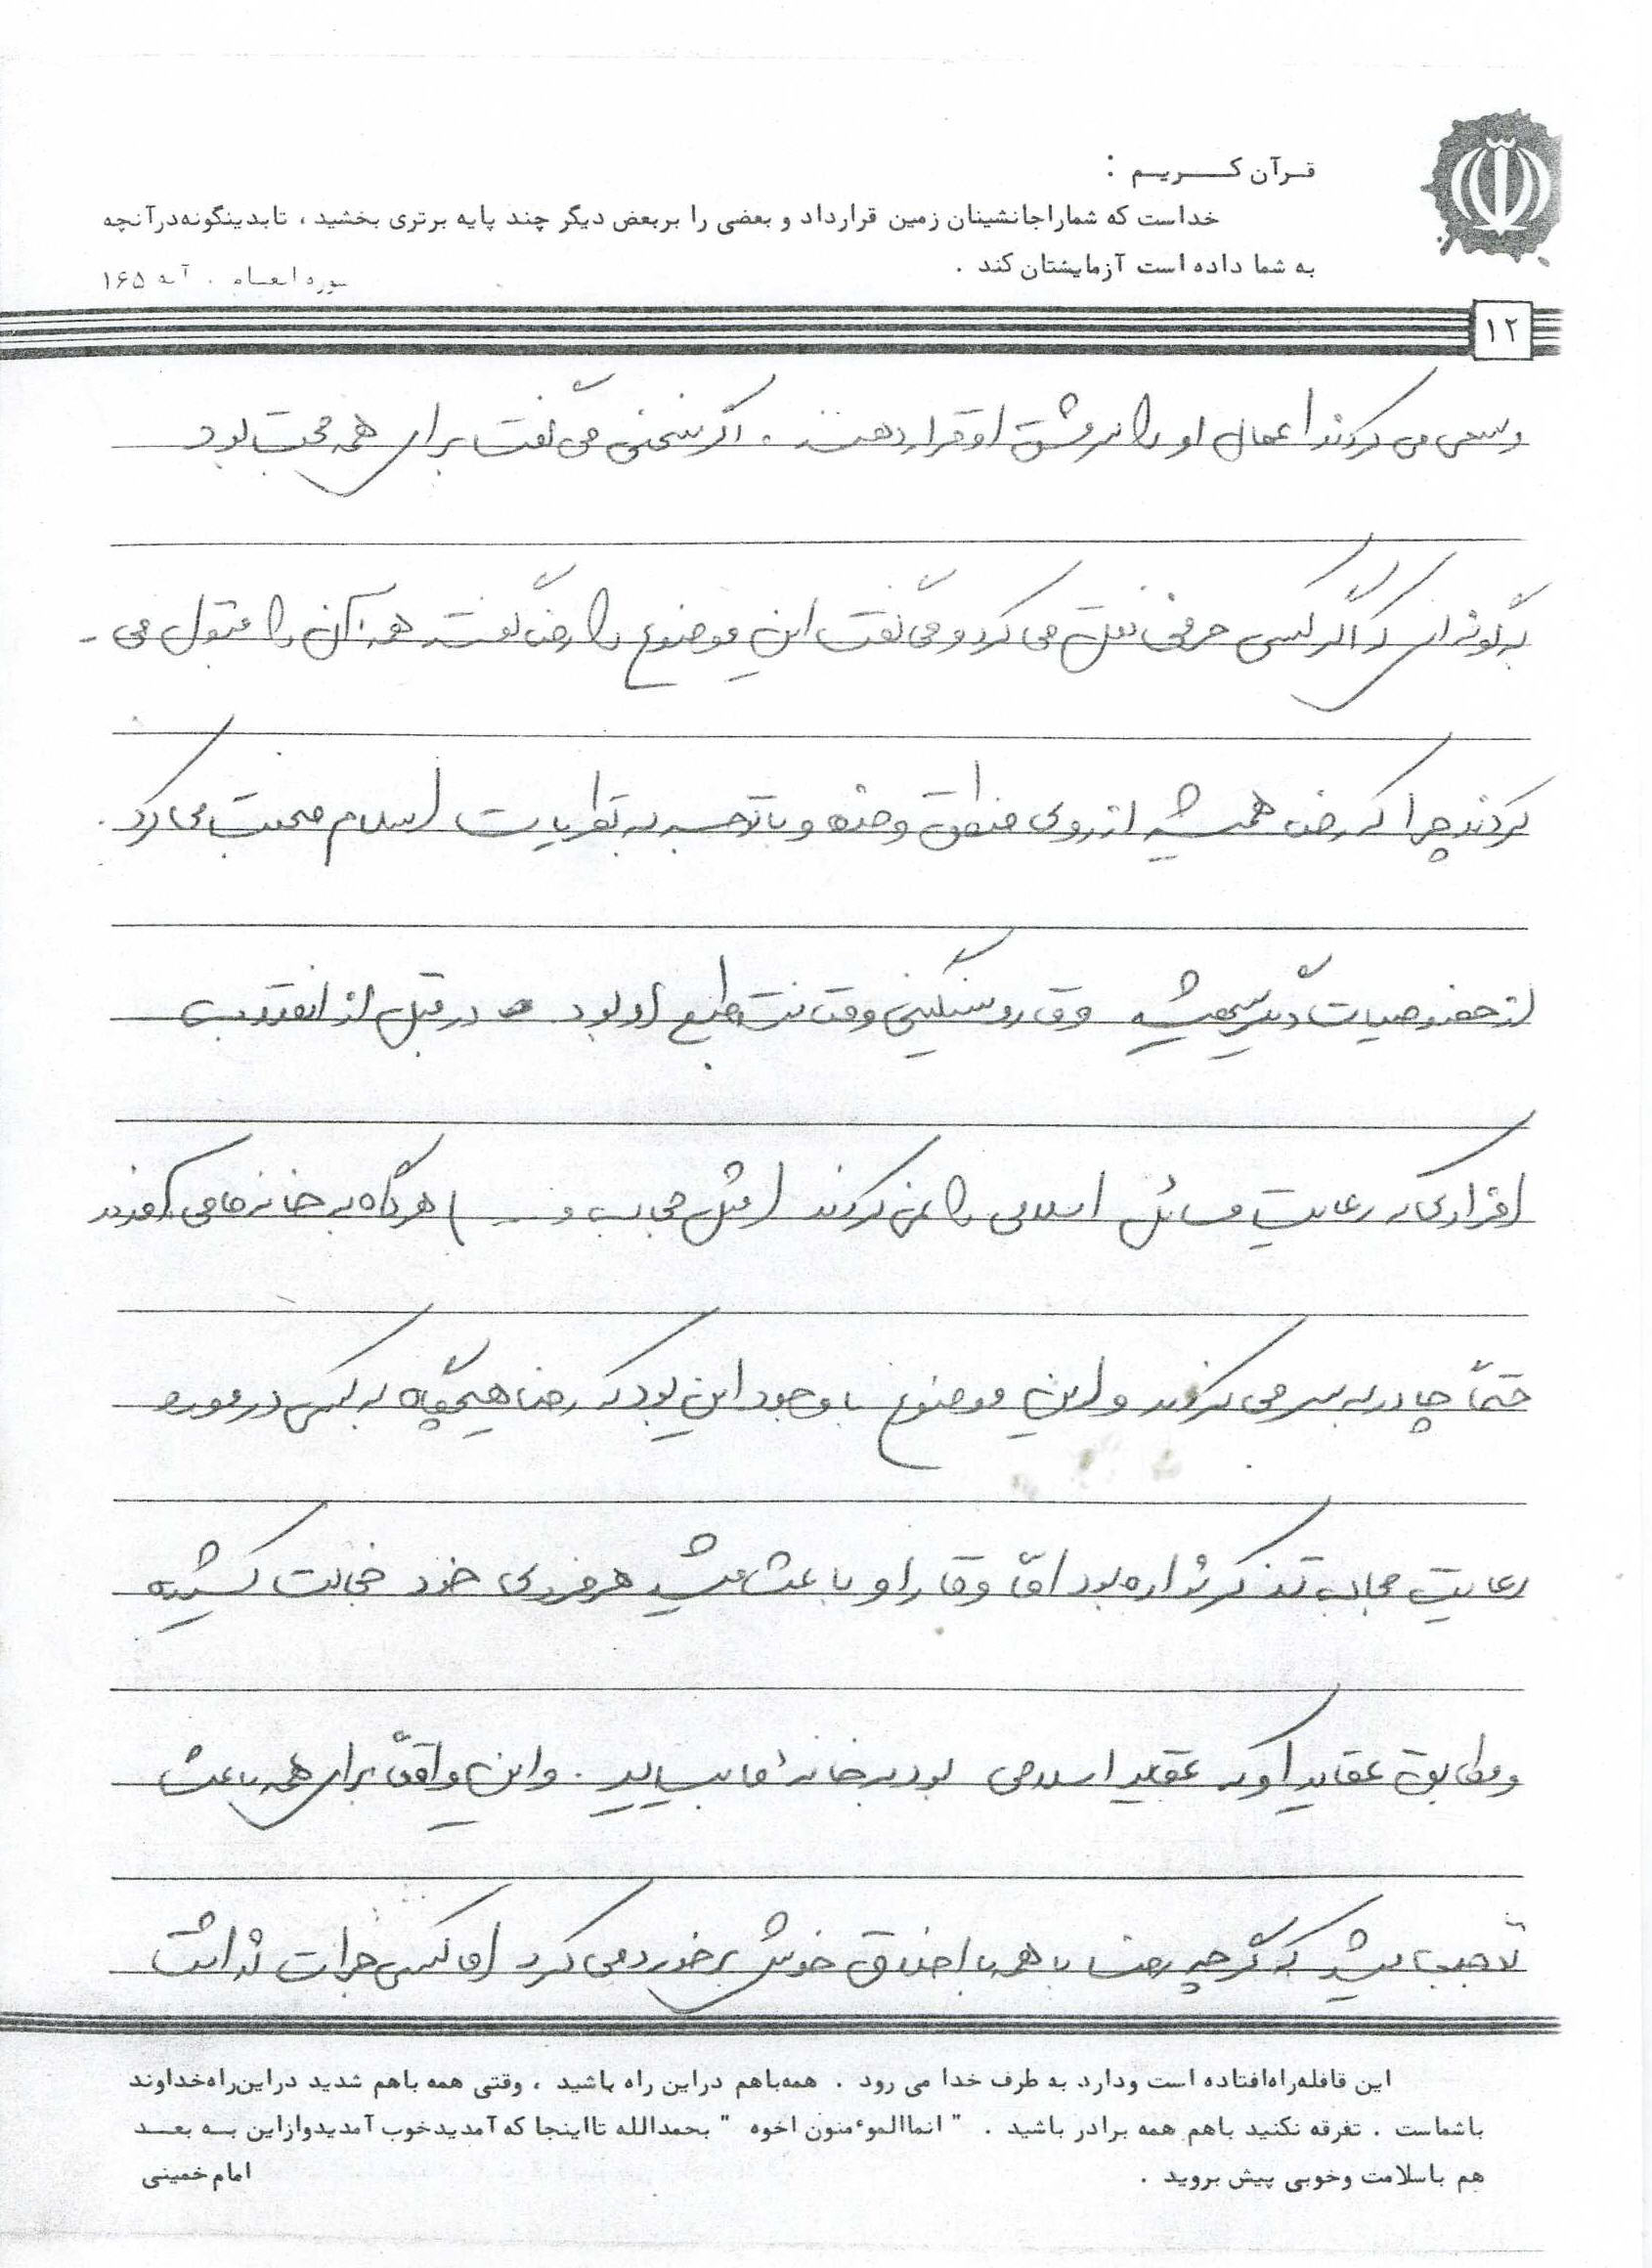 قـرآن کـــریـم :
خداست که شماراجانشینان زمین قرارداد و بعضی را بربعض دیگر چند پایه برتری بخشید ، تابدینگونه‌درآنچه
به شما داده است آزمایشتان کند .
سوره انعـام . آیه ۱۶۵
۱۲
و سعی می کردند اعمال او را سرمشق او قرار دهند . اگر سخنی می گفت برای همه حجت بود
به گونه ای که اگر کسی حرفی نقل می کرد و می گفت این موضوع را رضا گفته همه آن را قبول می -
کردند چرا که رضا همیشه از روی منطق و با توجه به نظریات اسلام صحبت می کرد .
از خصوصیات دیگر وقار و سنگینی و متانت طبع او بود در قبل از انقلاب
افرادی که رعایت مسائل اسلامی را نمی کردند ( مثل حجاب و ... ) هرگاه به خانه ما می آمدند
حتماً چادر به سر می کردند و این موضوع با وجود این بود که رضا هیچگاه به کسی در مورد
رعایت حجاب تذکر نداده بود امّا وقار او باعث میشد هر فردی خود خجالت کشیده
و مطابق عقاید او که عقاید اسلامی بود به خانهٔ ما بیاید . و این واقعاً برای همه باعث
تعجب میشد که گرچه رضا با همه با اخلاق خوش برخورد می کرد اما کسی جرات نداشت
این قافله‌راه‌افتاده است ودارد به طرف خدا می رود . همه‌باهم دراین راه باشید ، وقتی همه باهم شدید دراین‌راه‌خداوند
باشماست . تفرقه نکنید باهم همه برادر باشید . " انماالموءمنون اخوه " بحمدالله تااینجا که آمدیدخوب آمدیدوازاین بــه بعــد
هم باسلامت وخوبی پیش بروید .
امام خمینی